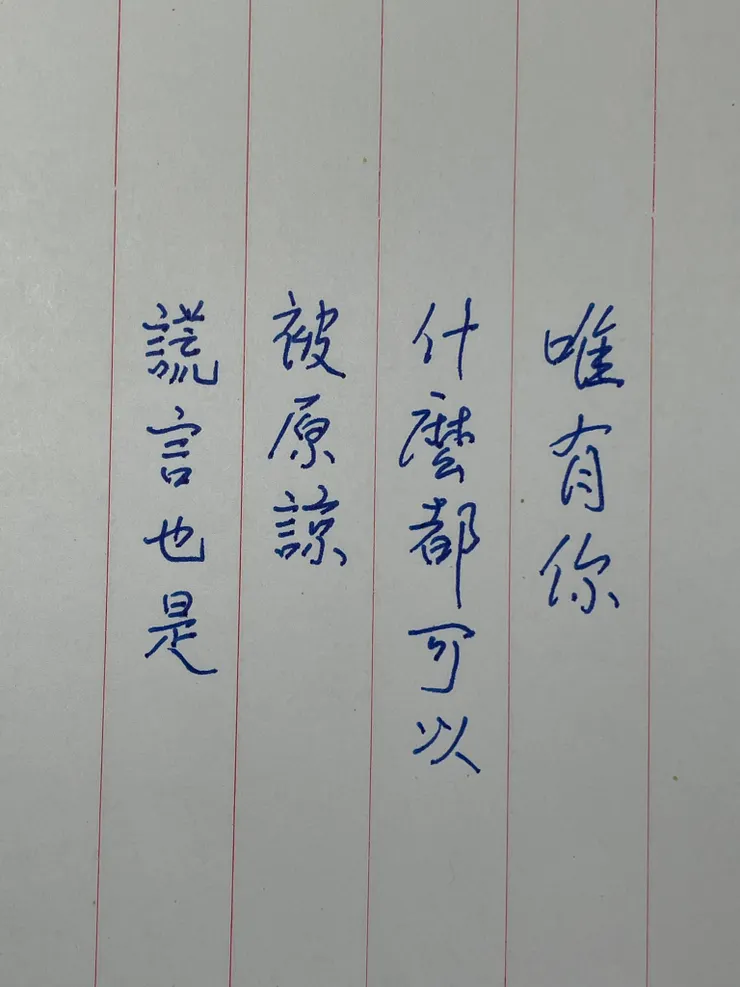 唯有你
什麼都可以
被原諒
謊言也是